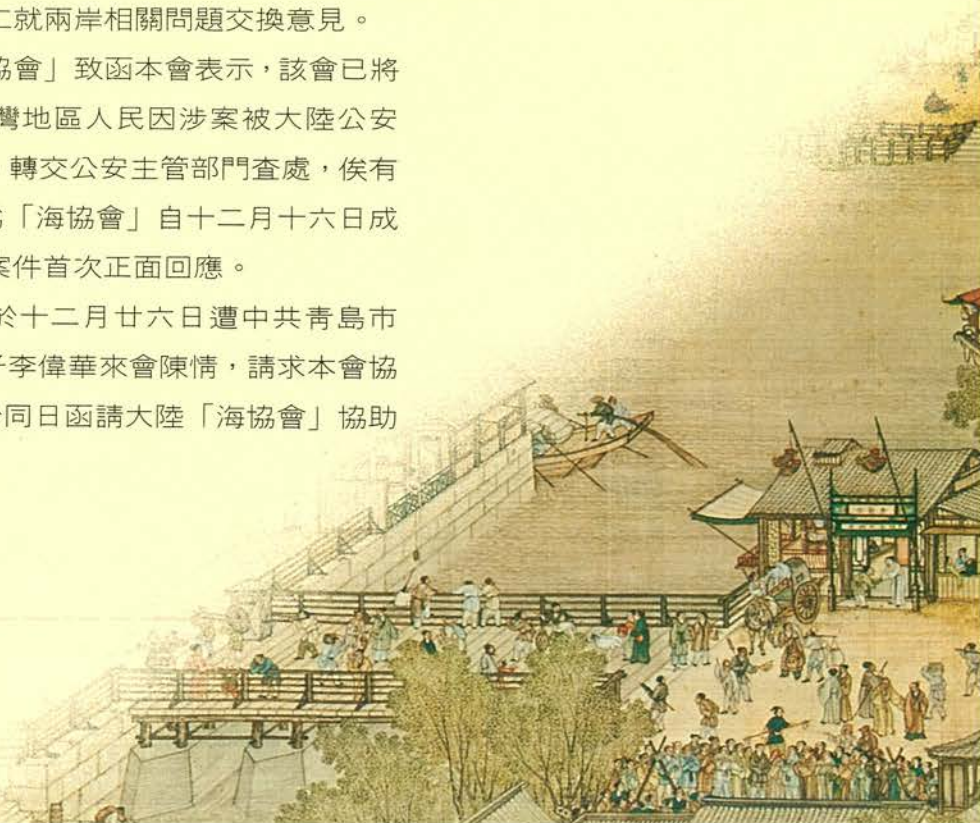 就兩岸相關問題交換意見。
協會」致函本會表示，該會已將
灣地區人民因涉案被大陸公安
轉交公安主管部門查處，俟有
「海協會」自十二月十六日成
案件首次正面回應。
於十二月廿六日遭中共青島市
李偉華來會陳情，請求本會協
同日函請大陸「海協會」協助